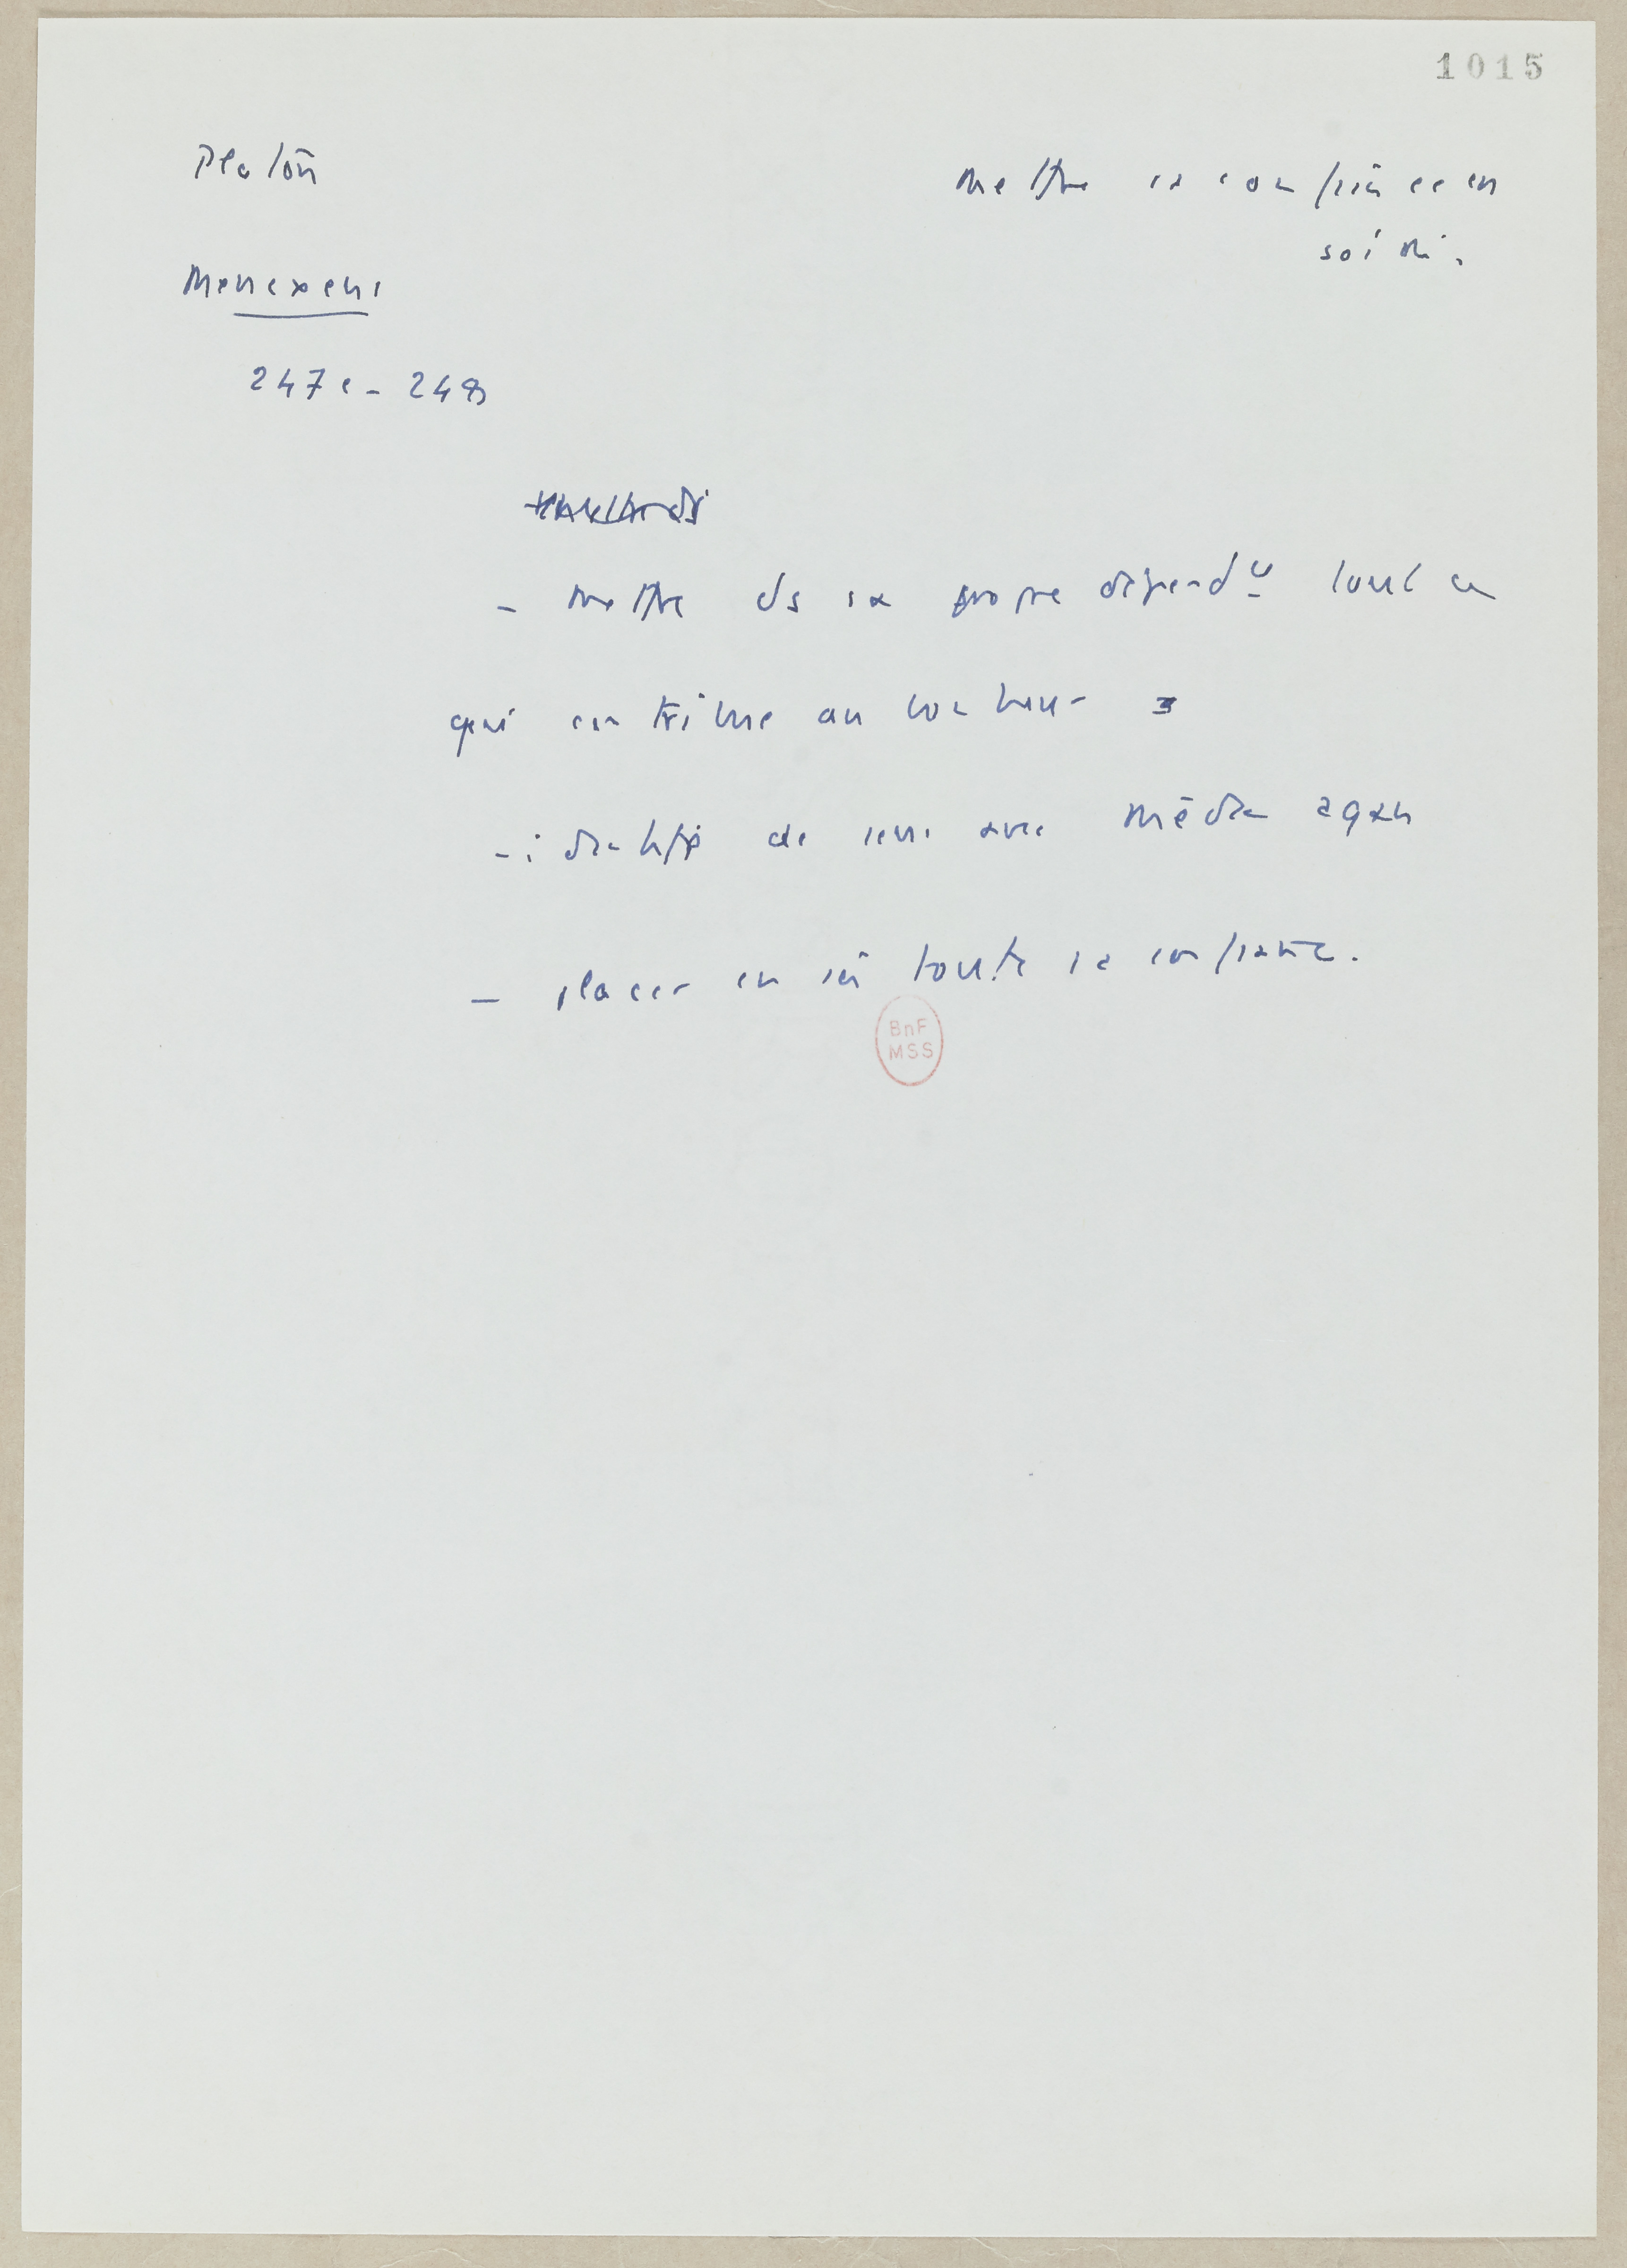 1015
Platon
mettre sa confiance en
soi m.
Menexene
247e - 248
- mettre ds sa propre dépendce tout ce
qui contribue au bonheur
- identifié de ceci avec mêden agan
- placer en soi toute sa confiance.
BnF
MSS